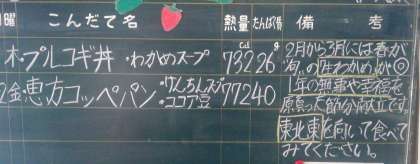 曜 こんだて名 熱量 たんぱく質 備考
Cal g
木・プルコギ丼・わかめスープ 732 26
2金 恵方コッペパン・けんちん汁・ココア豆 772 40
2月から3月には春が
旬の生わかめが◎
1年の無事や幸福を
願った節分献立です
東北東を向いて食べて
みてください。